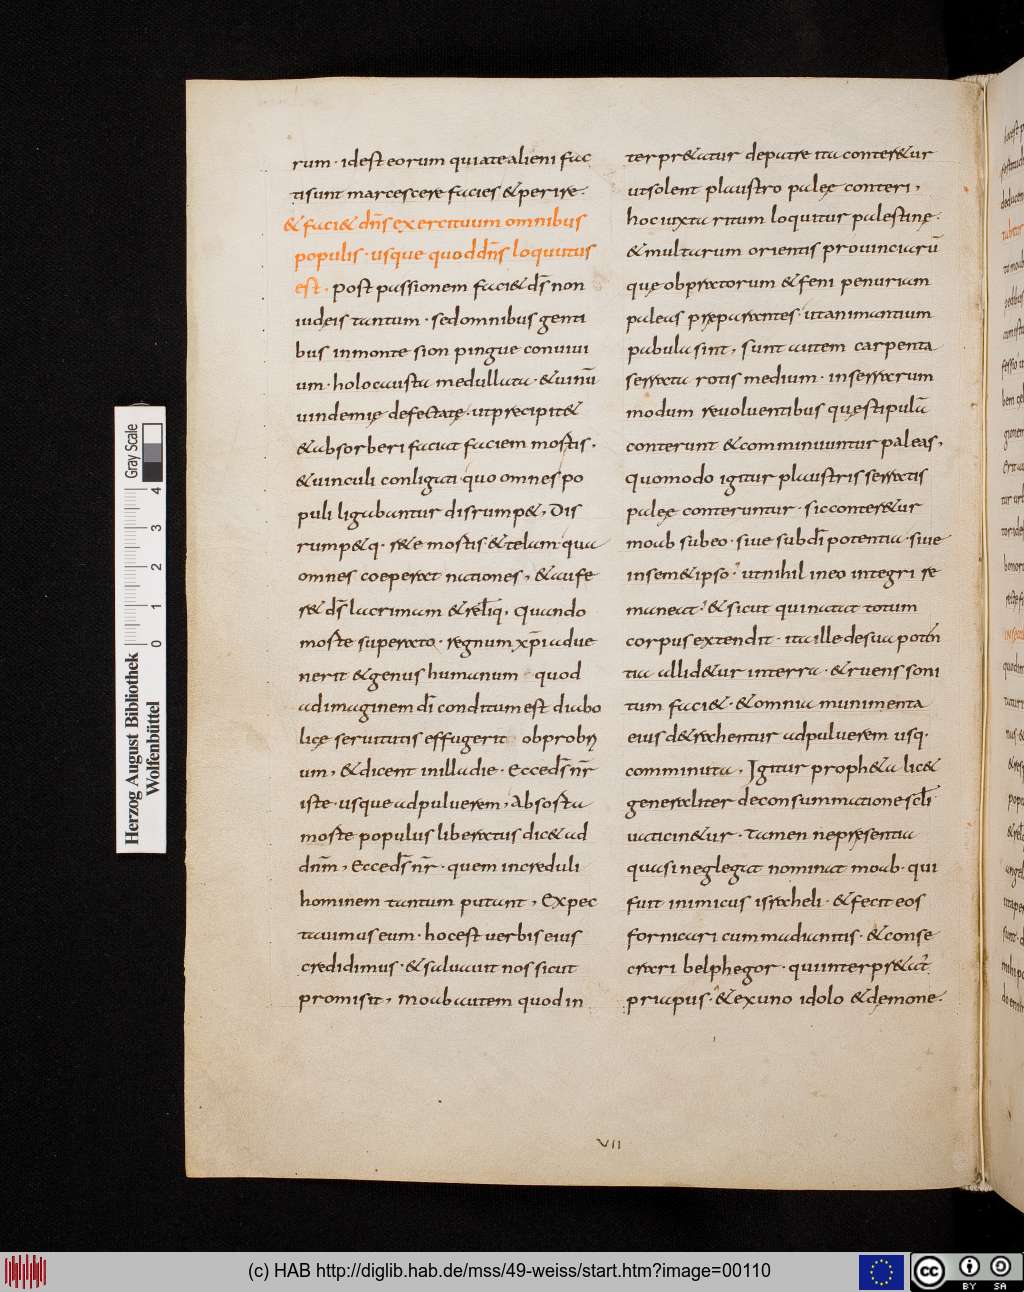 rum · id est eorum quia te alieni fac
ti sunt marcescere facies & perire·
& faci& dn̄s exercituum omnibus
populis · usque quod dn̄s loquutus
est · post passionem faci& ds̄ non
iudeis tantum · sed omnibus genti
bus in monte sion pingue conuiui
um · holocausta medullata · & uinū
uindemię defectatę · ut precipit&
& absorberi faciat faciem mortis ·
& uinculi conligati quo omnes po
puli ligabantur disrump&, Dis
rump& q· r&e mortis & telam qua
omnes coeperat nationes, & aufe
r& ds̄ lacrimam & reliq̄, quando
morte superata · regnum xp̄i adue
nerit & genus humanum quod
ad imaginem dī conditum est diabo
licę seruitutis effugerit obprobri
um, & dicent in illa die · Ecce ds̄ nr̄
iste · usque ad puluerem, Absorta
morte populus liberatus dic& ad
dnm̄, Ecce ds̄ nr̄ · quem increduli
hominem tantum putant, Expec
tauimus eum · hoc est uerbis eius
credidimus · & saluauit nos sicut
promisit, Moab autem quod in
terpr&atur de patre ita conter&ur
ut solent plaustro palęe conteri,
hoc iuxta ritum loquitur palestinę ·
& multarum orientis prouinciarū
quę ob pratorum & feni penuriam
paleas pręparantes · ut animantium
pabula sint, sunt autem carpenta
serrata rotis medium · in serrarum
modum reuoluentibus quę stipulā
conterunt & comminuuntur paleas,
quomodo igitur plaustris serratis
palęe conteruntur · sic conter&ur
moab sub eo · siue sub dī potentia · siue
in sem&ipso · ut nihil in eo integri re
maneat · & sicut qui natat totum
corpus extendit · ita ille de sua poten
tia allid&ur in terra · & ruens soni
tum faci& · & omnia munimenta
eius d&rahentur ad puluerem usq·
comminuta, Igitur proph&a lic&
generaliter de consummatione scl̄i
uaticin&ur · Tamen ne pręsentia
quasi neglegat nominat moab · qui
fuit inimicus israheli · & fecit eos
fornicari cum madianitis · & conse
crari belphegor · qui interpr&at̄
priapus · & ex uno idolo & dęmone ·
VII
Herzog August Bibliothek
Wolfenbüttel
0 1 2 3 4
Gray Scale
(c) HAB http://diglib.hab.de/mss/49-weiss/start.htm?image=00110
cc BY SA